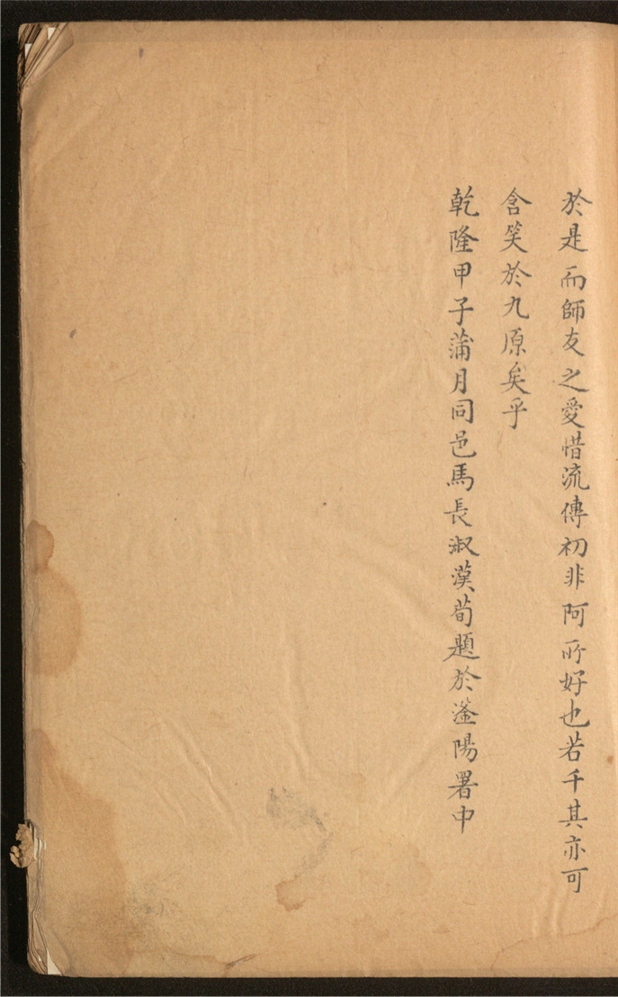 於是而師友之愛惜流傳初非阿所好也若千其亦可
含笑於九原矣乎
乾隆甲子蒲月同邑馬長淑漢荀題於滏陽署中